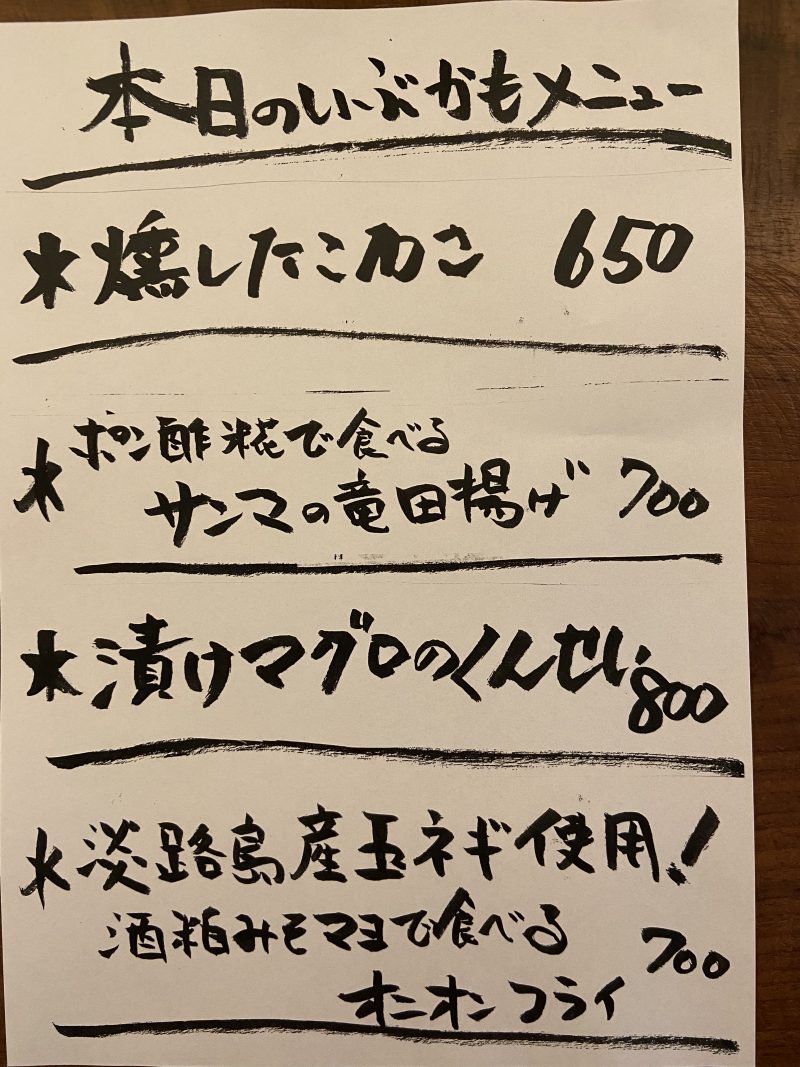 本日のいぶかもメニュー
*燻したこわさ 650
*ポン酢糀で食べる
サンマの竜田揚げ 700
*漬けマグロのくんせい 800
*淡路島産玉ネギ使用!
酒粕みそマヨで食べる 700
オニオンフライ